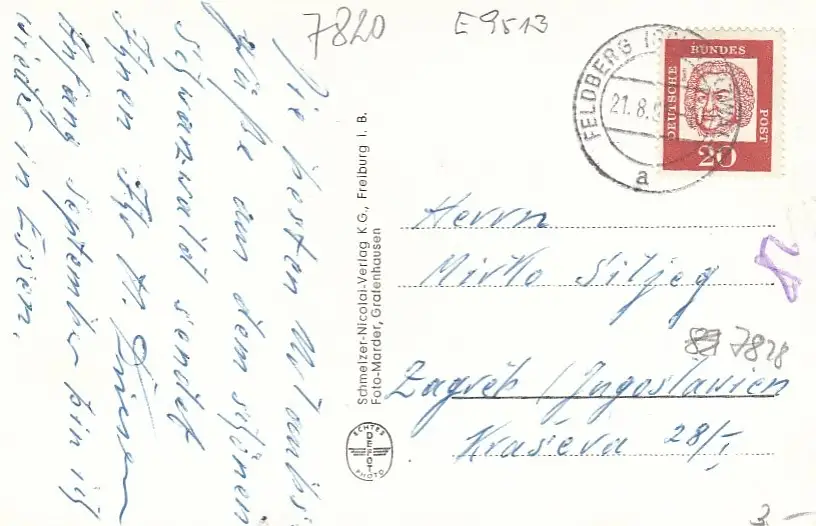 7820
E 9513
FELDBERG (SCHWARZW
21.8.6
a
DEUTSCHE
BUNDES
POST
20
Die besten Urlaubs-
grüße aus dem schönen
Schwarzwald sendet
Ihnen Ihr H.
Anfang September bin ich
wieder in Essen.
Schmelzer-Nicolai-Verlag KG., Freiburg i. B.
Foto-Marder, Grafenhausen
ECHTES
DEFOT
PHOTO
Herrn
Mirko Siljeg
7828
Zagreb / Jugoslavien
Kraševa 28/I
3.-